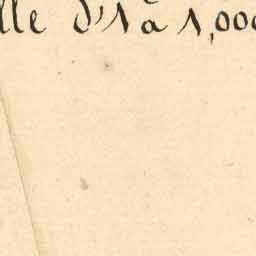 lle d'1 à 1,000